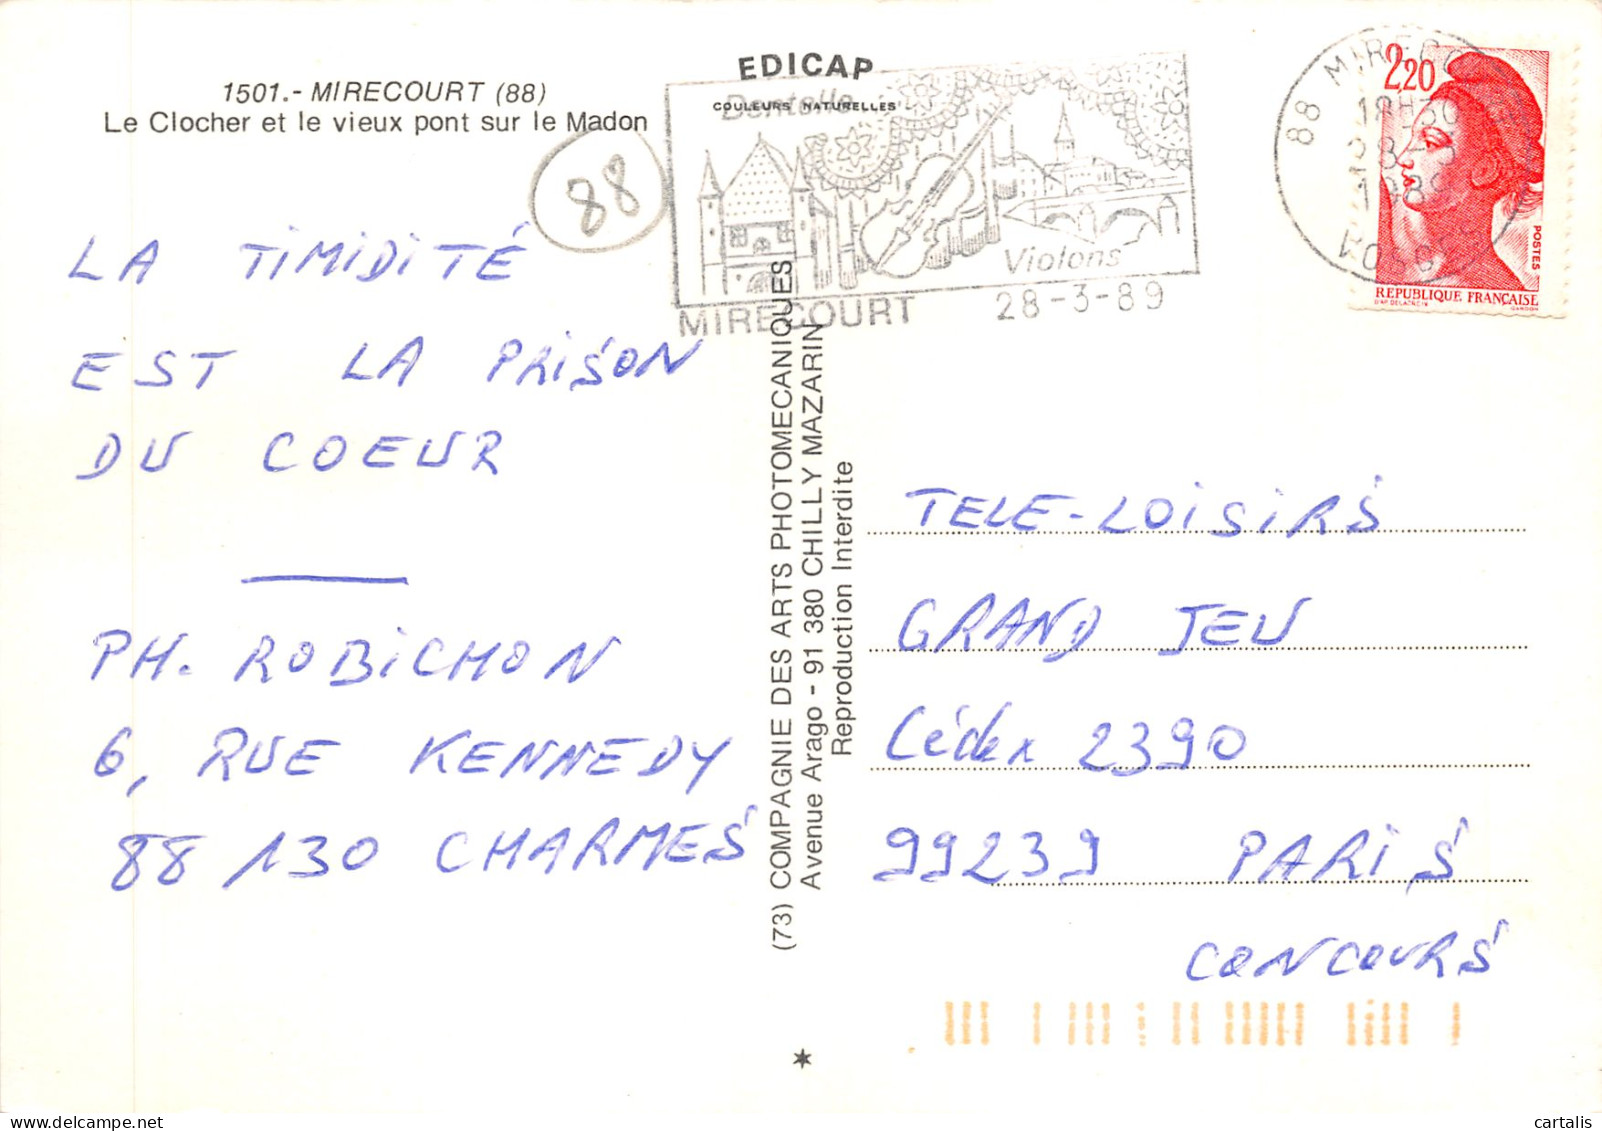 1501.- MIRECOURT (88)
Le Clocher et le vieux pont sur le Madon
EDICAP
COULEURS NATURELLES
Dentelle
Violons
MIRECOURT 28-3-89
88
88 MIRECO
18H30
28-3
1989
VOSGES
2,20
POSTES
REPUBLIQUE FRANÇAISE
LA TIMIDITÉ
EST LA PRISON
DU COEUR
PH. ROBICHON
6, RUE KENNEDY
88 130 CHARMES
(73) COMPAGNIE DES ARTS PHOTOMECANIQUES
Avenue Arago - 91 380 CHILLY MAZARIN
Reproduction Interdite
TELE-LOISIRS
GRAND JEU
Cédex 2390
99239 PARIS
CONCOURS
cartalis